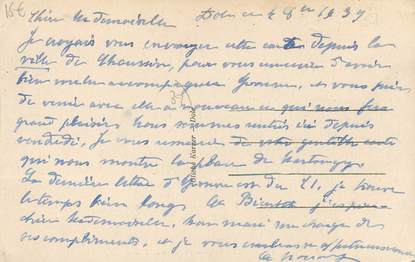 15€
Chère Mademoiselle Dole ce 4 8bre 1934
Je croyais vous envoyer cette carte depuis la
ville de Chaussin, pour vous remercier d'avoir
bien voulu accompagner Yvonne, et vous prier
de venir avec elle à nouveau ce qui nous fera
grand plaisir. Nous sommes rentrés ici depuis
vendredi. Je vous remercie de votre gentille carte
qui nous montre la place de
La dernière lettre d'Yvonne est du 21, je trouve
le temps bien long. A Bientôt j'espère
chère Mademoiselle, mon mari me charge de
ses compliments, et je vous embrasse affectueusement
Karrer Dole